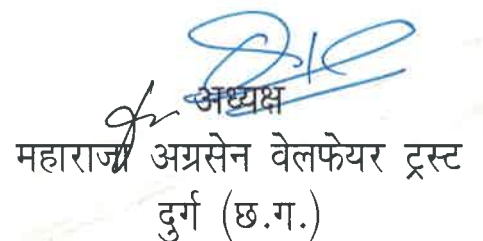 अध्यक्ष
महाराजा अग्रसेन वेलफेयर ट्रस्ट
दुर्ग (छ.ग.)